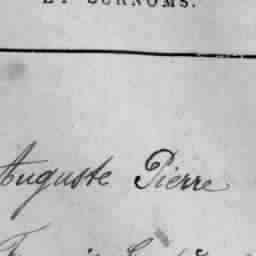 ET SURNOMS.
Auguste Pierre